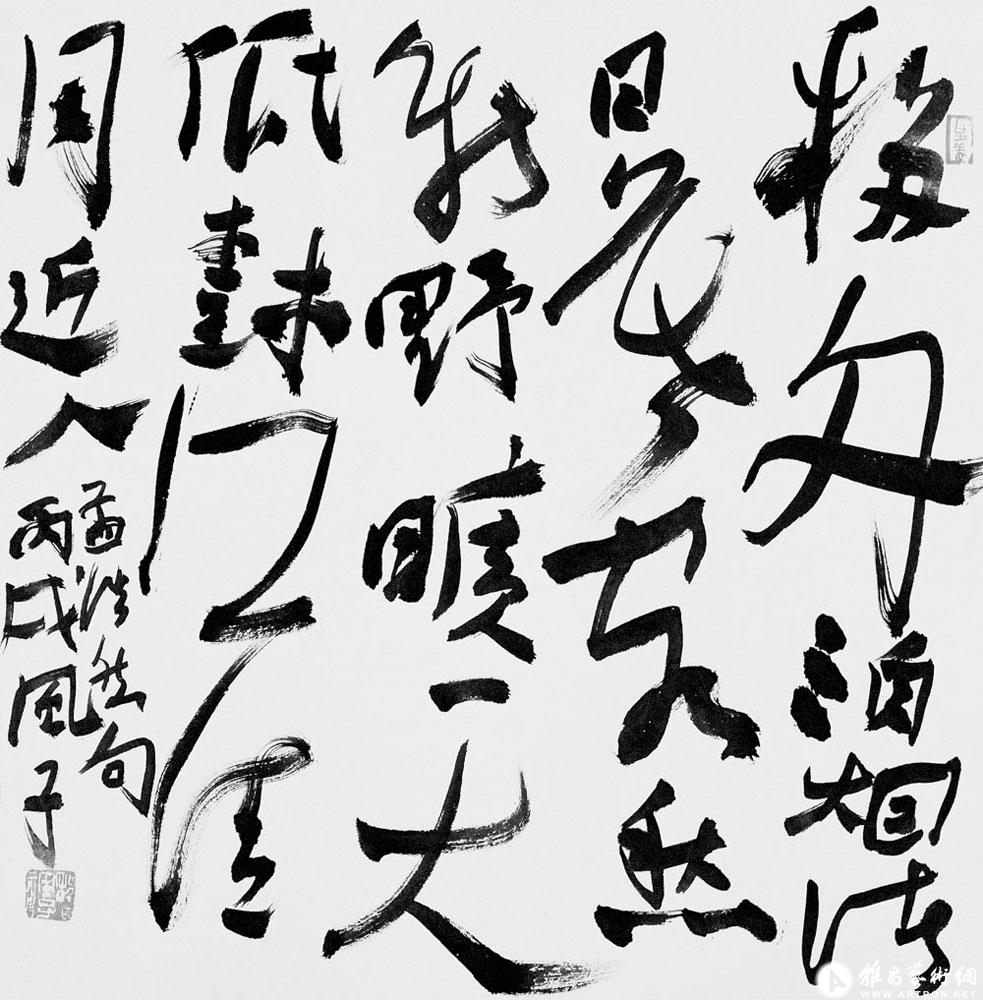 移舟泊烟渚
日暮客愁
新野曠天
低樹江清
月近人
孟浩然句
丙戌風子
雅昌藝術網
WWW.ARTRON.NET